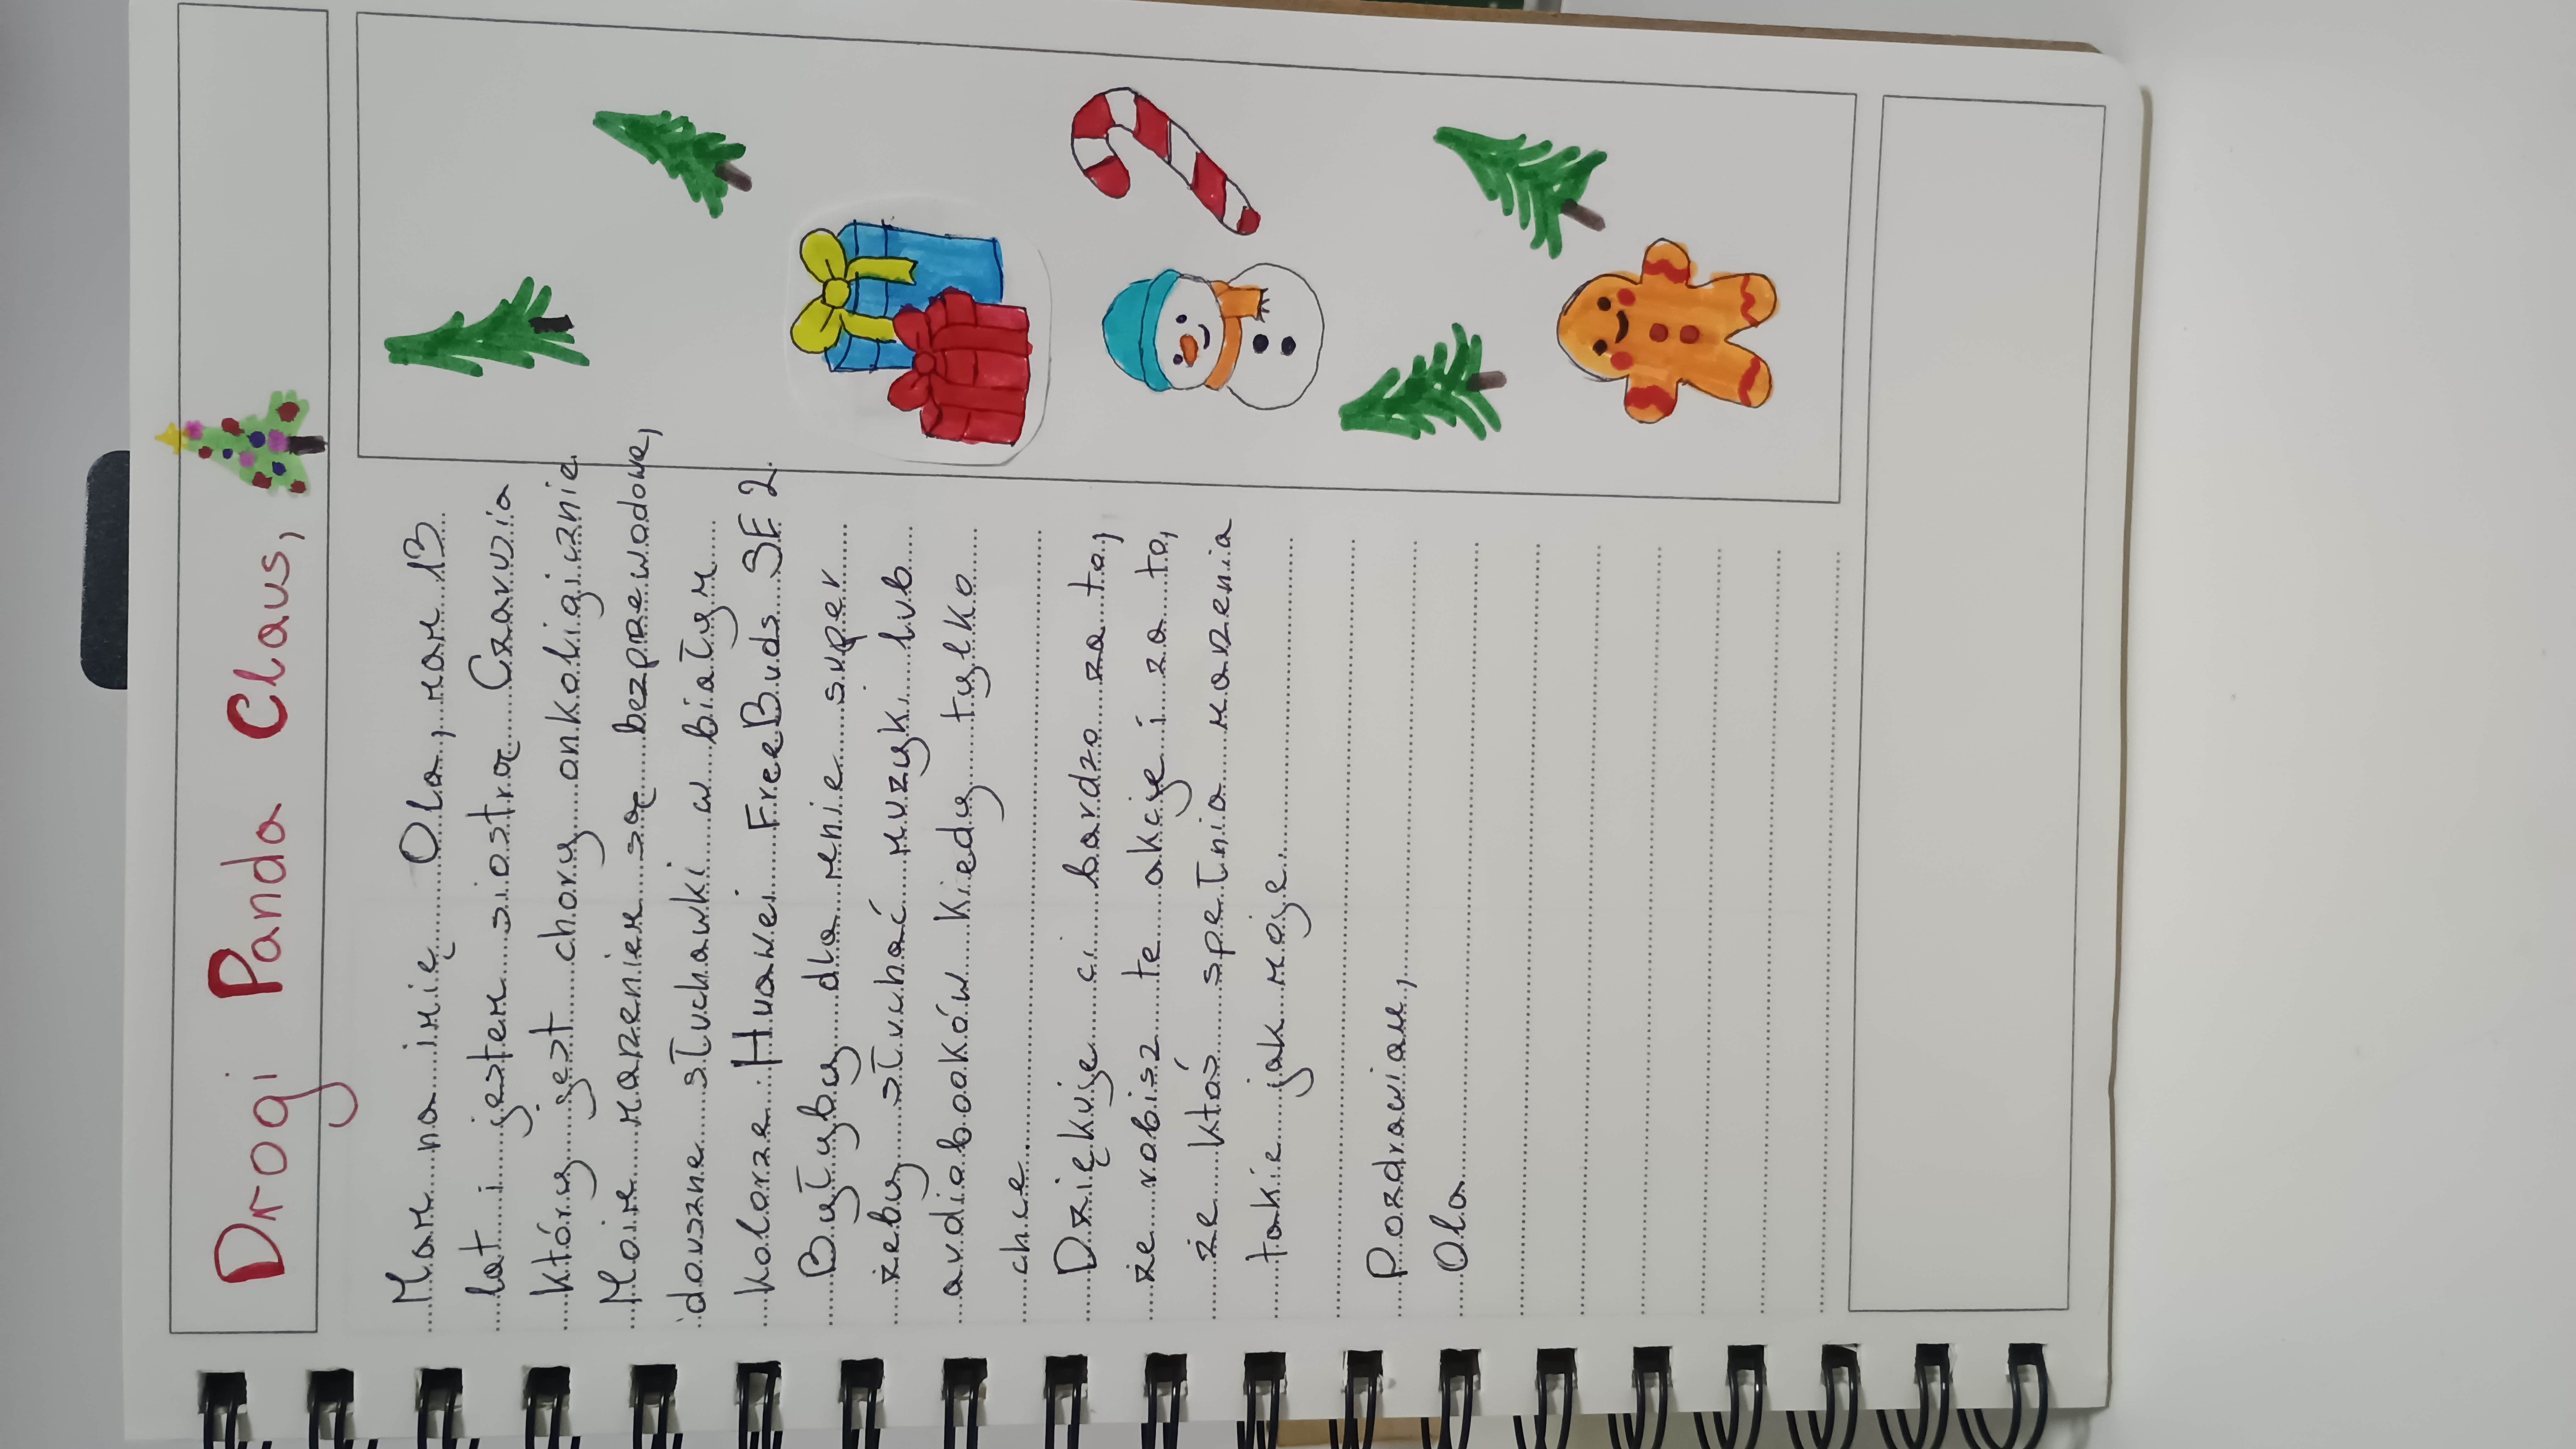 Drogi Panda Claus,
Mam na imię Ola, mam 13
lat i jestem siostrą Czarusia
który jest chory onkologicznie.
Moim marzeniem są bezprzewodowe,
douszne słuchawki w białym
kolorze Huawei FreeBuds SE 2.
Byłyby dla mnie super
żeby słuchać muzyki lub
audiobooków kiedy tylko
chce.
Dziękuje ci bardzo za to,
że robisz te akcje i za to,
że ktoś spełnia marzenia
takie jak moje.
Pozdrawiam,
Ola